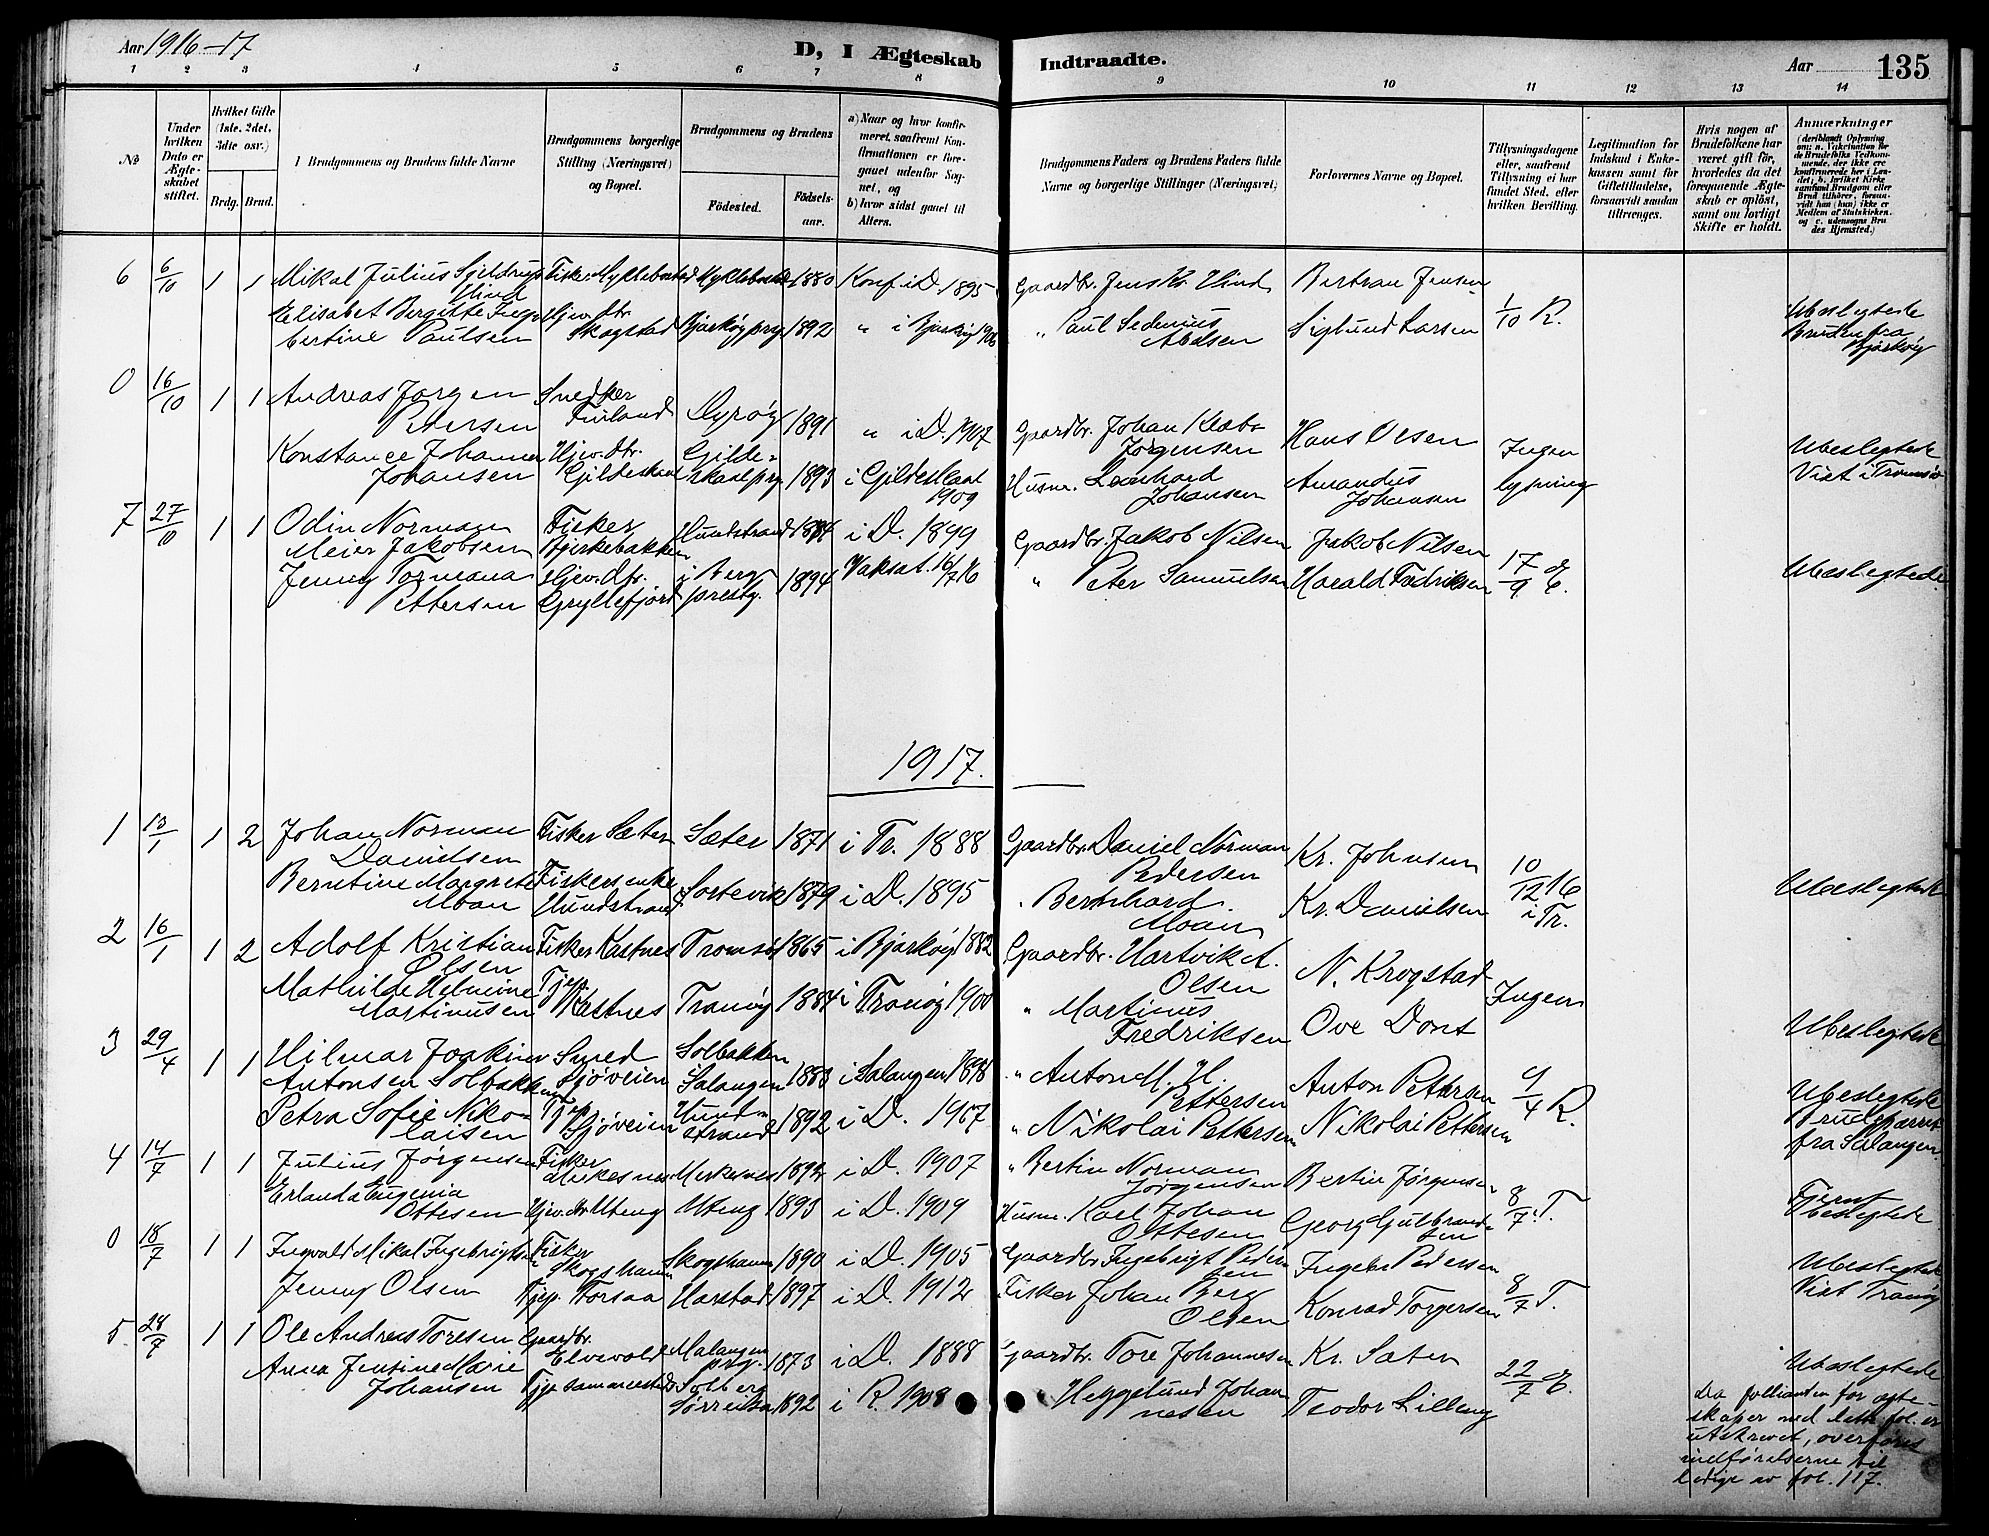 Aar 1916-17
D, I Ægteskab Indtraadte.
Aar 135
1 2 3 4 5 6 7 8 9 10 11 12 13 14
No
Under hvilken Dato er Ægteskabet stiftet.
Hvilket Gifte (1ste, 2det, 3die osv.)
Brdg. Brud.
Brudgommens og Brudens fulde Navne
Brudgommens borgerlige Stilling (Næringsvei) og Bopæl.
Brudgommens og Brudens
Fødested. Fødselsaar.
a) Naar og hvor konfirmeret, saafremt Konfirmationen er foregaaet udenfor Sognet, og
b) hvor sidst gaaet til Alters.
Brudgommens Faders og Brudens Faders fulde Navne og borgerlige Stillinger (Næringsvei)
Forlovernes Navne og Bopæl.
Tillysningsdagene eller, saafremt Tillysning ei har fundet Sted, efter hvilken Bevilling.
Legitimation for Indskud i Enkekassen samt for Giftetilladelse, forsaavidt saadan tiltrænges.
Hvis nogen af Brudefolkene har været gift før, hvorledes da det foregaaende Ægteskab er opløst, samt om lovligt Skifte er holdt.
Anmærkninger
(deriblandt Oplysning om: a. Vakcination for de Brudefolks Vedkommende, der ikke ere konfirmerede her i Landet; b. hvilket Kirkesamfund Brudgom eller Brud tilhører, forsaavidt han (hun) ikke er Medlem af Statskirken, og c. udensogns Brudes Hjemsted.)
6 6/10 1 1 Mikal Julius Sjeldrup Hind Fisker Myklebostad Myklebostad 1880 Konf. i D. 1895 Gaardbr. Jens Kr. Hind Bertran Jensen 1/10 R.
Elisabet Birgitte Inge bertine Paulsen Hjev. dtr. Skogstad Bjarkøy prg. 1892 " i Bjarkøy 1906 " Paul Sedenius Abelsen Siglund Larsen Ubeslegtede Bruden fra Bjarkøy
0 16/10 1 1 Andreas Jørgen Petersen Snedker Finland Dyrøy 1891 " i D. 1907 Gaardbr. Johan Klæbo Jørgensen Hans Olsen Ingen lysning
Konstance Johanna Johansen Hjev. dtr. Gildeskaal Gildeskaal prg. 1893 i Gildeskaal 1909 Husm. Leonhard Johansen Amandus Johansen Ubeslegtede Viet i Tromsø
7 27/10 1 1 Odin Norman Meier Jakobsen Fisker Bjirkebakken Hundstrand 1884 i D. 1899 Gaardbr. Jakob Nilsen Jakob Nilsen 17/9 E.
Jenny Tormana Pettersen Hjev. dtr. Gryllefjord i Berg prestg. 1894 Vaksat. 16/7 16 " Peter Samuelsen Harald Fredriksen Ubeslegtede
1917.
1 13/1 1 2 Johan Norman Danielsen Fisker Sæter Sæter 1871 i Tr. 1888 Gaardbr. Daniel Norman Pedersen Kr. Johnsen 10/12 16 i Tr.
Berntine Margrete Moan Fiskers enke Hundstrand Sortevik 1879 i D. 1895 " Bernhard Moan Kr. Danielsen Ubeslegtede
2 16/1 1 2 Adolf Kristian Olsen Fisker Kastnes Tromsø 1865 i Bjarkøy 1882 Gaardbr. Hartvik A. Olsen N. Krogstad Ingen
Mathilde Helmine Martinusen Tjep. Kastnes Tranøy 1884 i Tranøy 1900 " Martinus Fredriksen Ove Dont Ubeslegtede
3 29/4 1 1 Hilmar Joakim Antonsen Solbakken Smed Sjøveien Solbakken Salangen 1883 i Salangen 1898 " Anton M. H. Pettersen Anton Pettersen 9/4 R.
Petra Sofie Nikolaisen Tjep. Sjøveien Hundstrand 1892 i D. 1907 " Nikolai Pettersen Nikolai Pettersen Ubeslegtede Brudeparret fra Salangen
4 14/7 1 1 Julius Jørgensen Fisker Mikesnes Mikesnes 1892 i D. 1907 " Bertin Norman Jørgensen Bertin Jørgensen 8/7 T.
Erlanda Eugenia Ottesen Hjev. dtr. Uteng Uteng 1893 i D. 1909 Husm. Karl Johan Ottesen Georg Gulbrandsen Fjernt beslegtede
0 18/7 1 1 Ingvald Mikal Ingebrigtsen Fisker Skogshavn Skogshavn 1890 i D. 1905 Gaardbr. Ingebrigt Pedersen Ingebr. Pedersen 8/7 T.
Jenny Olsen Tjep. Torsaa Harstad 1897 i D. 1912 Fisker Johan Berg Olsen Konrad Torgersen Ubeslegtede Viet Tranøy
5 28/7 1 1 Ole Andreas Toresen Gaardbr. Elvevold Malangen prg. 1873 i D. 1888 Gaardbr. Tore Johannesen Kr. Sæter 22/7 E.
Anna Jensine Marie Johansen Tjep. Solberg Sørreisa 1892 i R. 1908 " Heggelund Johannesen Teodor Lilleng Ubeslegtede
Da folianden for egteskaper med dette fol. er utskrevet, overføres indførelserne til ledige av fol. 117.